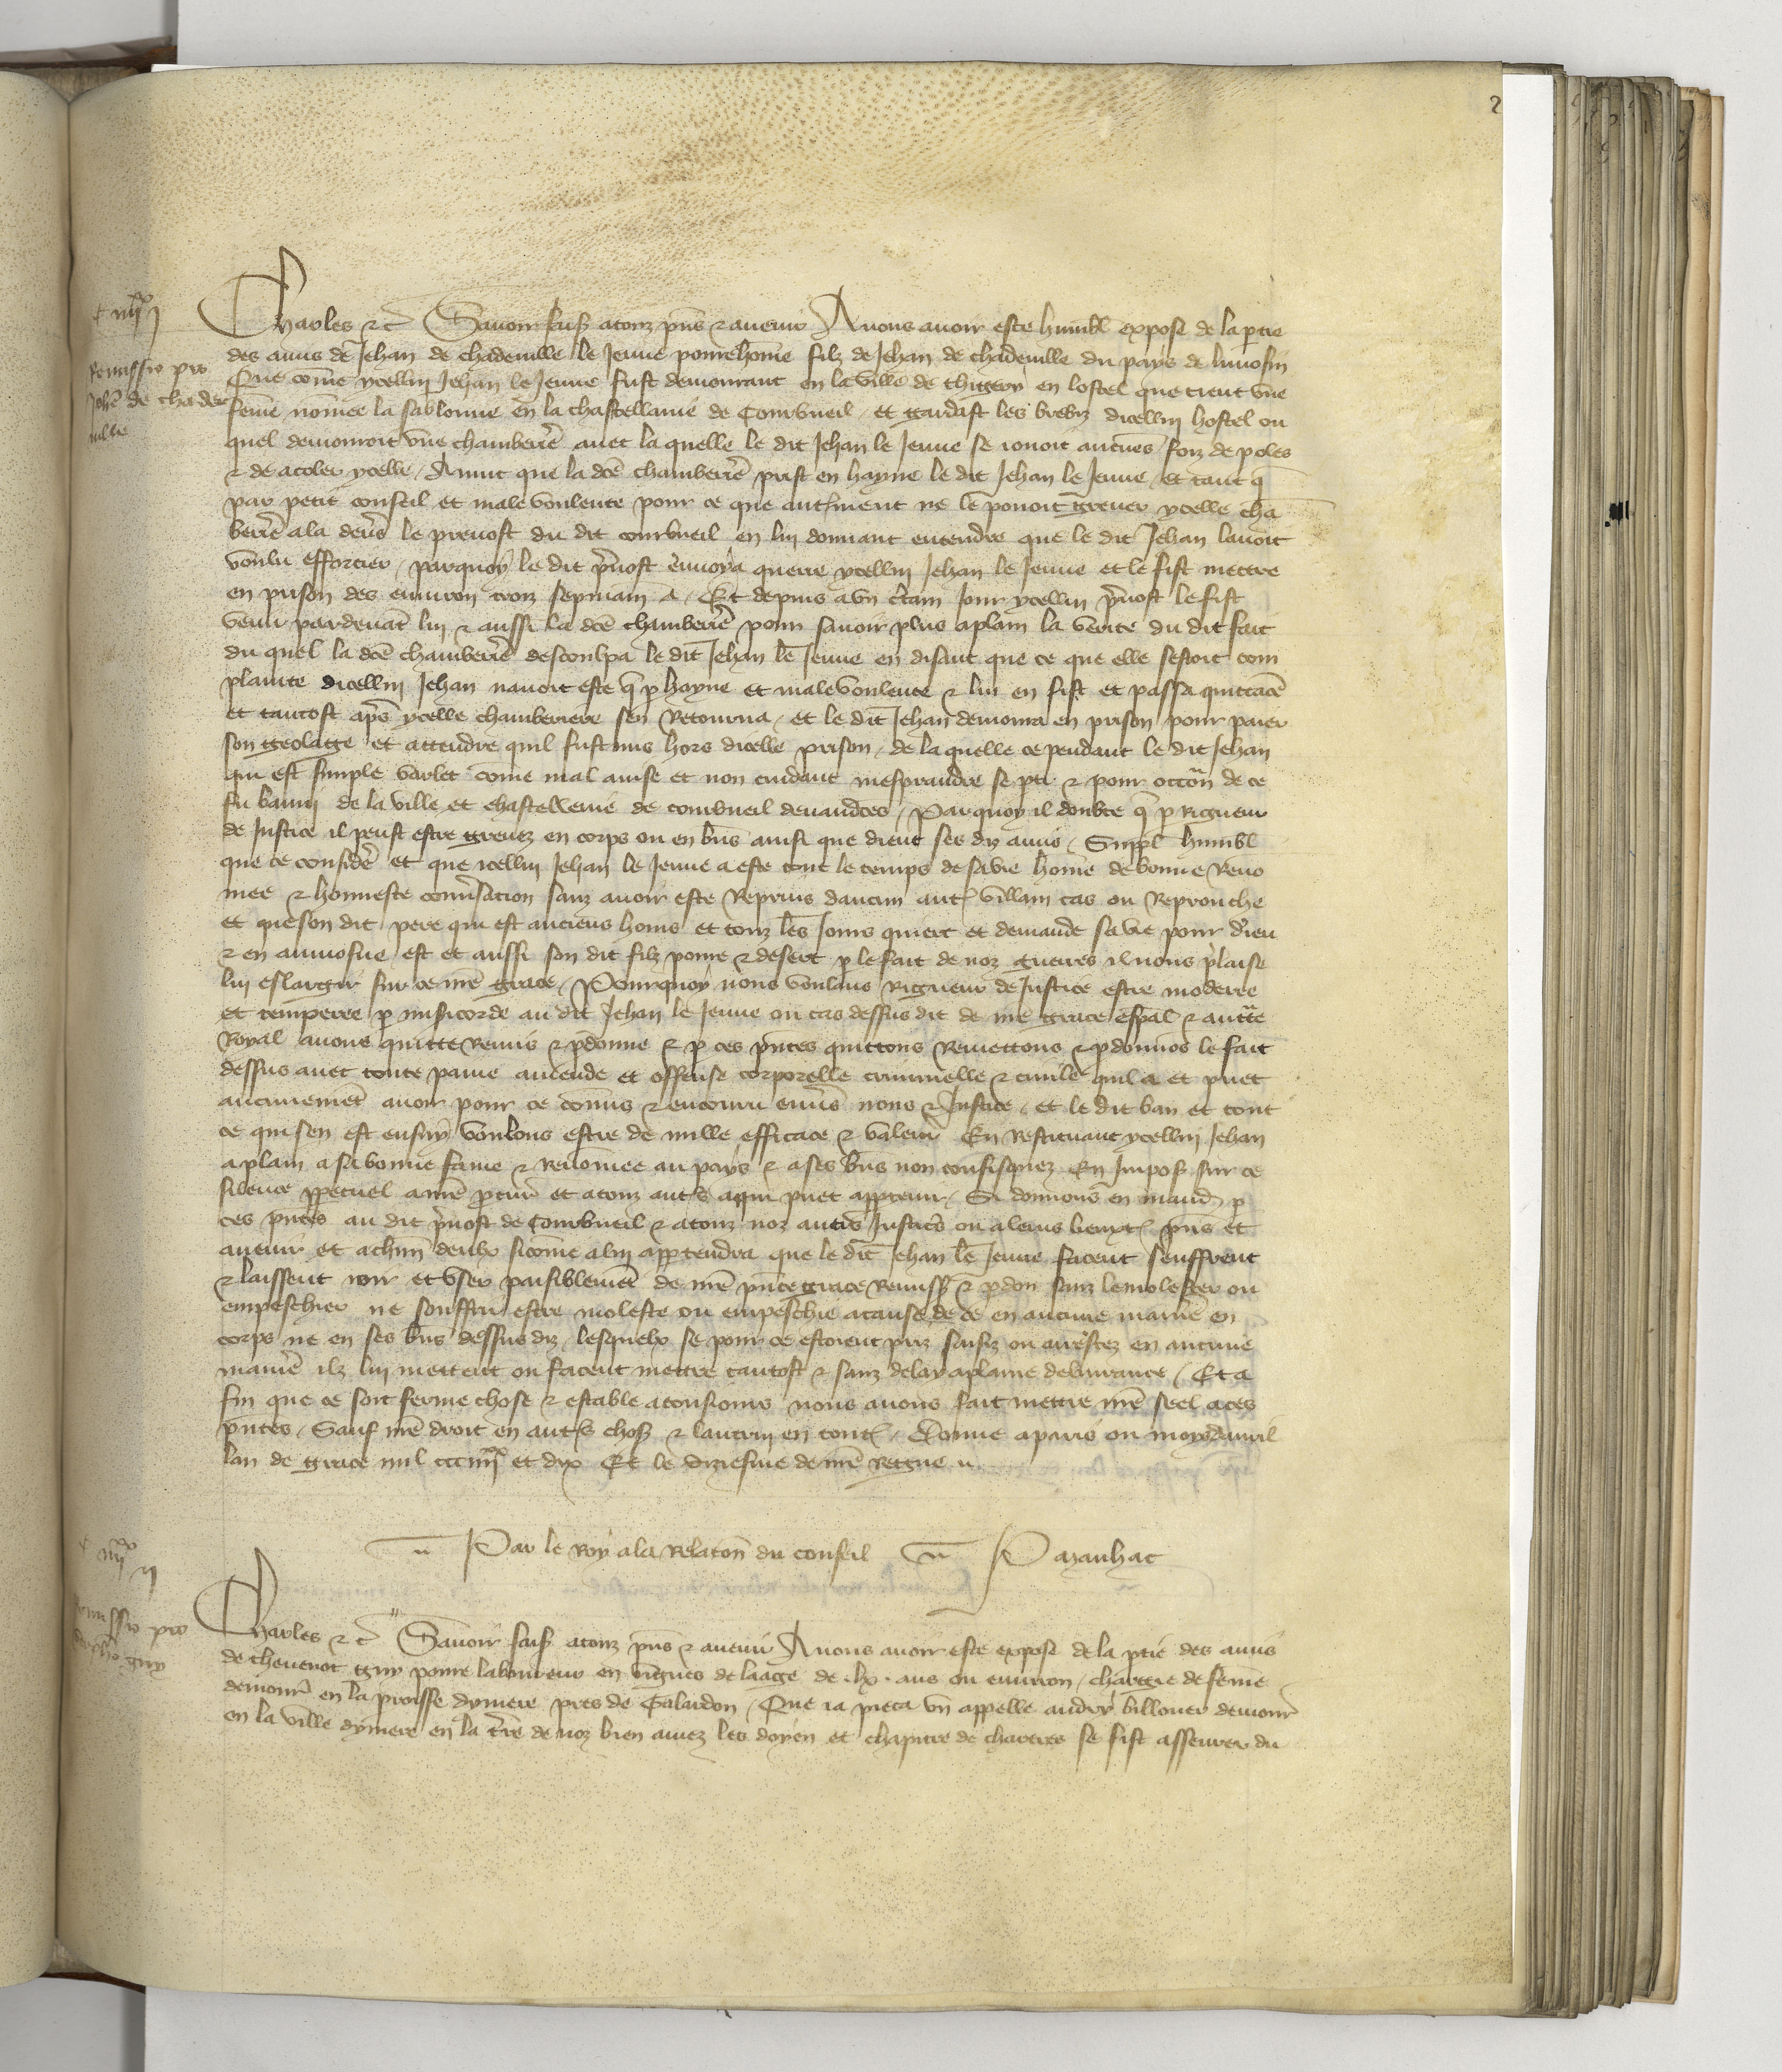 2
iiiixx i
Charles &c Savoir fais a touz p̃ns & avenir A nous avoir este humbl expose de la partie
Remissio pro
des amis de Jehan de chadeville le Jeune povre hom̃e filz de Jehan de chadeville du pays de limosin
Johẽ de chade
Que com̃e ycellui Jehan le Jeune fust demourant en la ville de thigery en lostel que tient vne
ville
fem̃e nom̃ee la sablonne en la chastellanie de Corbueil et gardast les brebiz dicellui hostel ou
quel demouroit vne chamberiẽ avec la quelle le dit Jehan le Jeune se jouoit aucũes foiz de poles
& de acoler ycelle / Avint que la dc̃e chamberiẽ prist en hayne le dit Jehan le Jeune et tant q̃
par petit conseil et male voulente pour ce que autr̃ment ne le pouoit grever ycelle chã
beriẽ ala deṽs le prevost du dit corbueil en lui donnant entendre que le dit Jehan lavoit
voulu efforcier / parquoy le dit p̃vost envoya querre ycellui Jehan le Jeune et le fist mettre
en prison des environ trois sepmain̄ a / Et depuis a vn c̃tain Jour ycellui p̃vost le fist
venir pardevãt lui & aussi la dc̃e chamberiẽ pour savoir plus aplain la verite du dit fait
du quel la dc̃e chamberiẽ descoulpa le dit Jehan le Jeune en disant que ce que elle sestoit com
plainte dicellui Jehan navoit este q̃ p hayne et malevoulente & lui en fist et passa quittãce
et tantost ap̃s ycelle chamberiere sen Retourna / et le dit Jehan demoura en prison pour paier
son geolage et attendre quil fust mis hors dicelle prison / de la quelle ce pendant le dit Jehan
qui est simple varlet com̃e mal avise et non cuidant mesprandre se pti & pour occõn de ce
fu banni de la ville et chastellenie de corbueil devandc̃es / Parquoy il doubte q̃ p Rigueur
de Justice il peust estre grevez en corps ou en bñs ainsi que dient ses diz amis / Suppl humbl
que ce considẽ et que icellui Jehan le Jeune a este tout le temps de sa vie hom̃e de bonne Reno
mee & honneste conṽsacion sanz avoir este Repris daucun autr̃ villain cas ou Reprouche
et que son dit pere qui est anciens homs et touz les Jours quiert et demande sa vie pour dieu
& en aumosne est et aussi son dit filz povre & desert p le fait de noz guerres il nous plaise
lui eslargir sur ce nr̃e grace / Pourquoy nous voulans Rigueur de Justice estre moderee
et temperee p misicorde au dit Jehan le Jeune ou cas dessus dit de nr̃e grace esp̃al & auctr̃te
Royal avons quitte Remis & p̱donne & p ces p̃ntes quittons Remettons & p̱donnõs le fait
dessus avec toute paine amende et offense corporelle criminelle & civile quil a et puet
aucunemẽt avoir pour ce com̃is & encouru env̄s nous & Justice / et le dit ban et tout
ce qui sen est ensuy voulons estre de nulle efficace & valeur En Restituant ycellui Jehan
a plain a sa bonne fame & renom̃ee au pays & a ses bñs non confisquez En Impos̃ sur ce
silence p̱petuel a nr̃e p̱cuṽ et a touz autr̃s a qui puet app̱tenir / Si donnons en mand̃ p
ces p̃ntes au dit p̃vost de Corbueil & a touz noz autr̃s Justic̃s ou a leurs lieuxt̃ p̃ns et
avenir et a chũn deulx sicom̃e a lui app̱tendra que le dit Jehan le Jeune facent seuffrent
& laissent joir et vser paisiblemẽt de nr̃e p̃nte grace Remiss̃ & p̱don sanz le molester ou
empeschier ne souffrir estre moleste ou empeschie a cause de ce en aucune maniẽ en
corps ne en ses bñs dessus diz / lesquelx se pour ce estoient priz saisiz ou arrestez en aucune
maniẽ ilz lui mettent ou facent mettre tantost & sanz delay a plaine delivrance / Et a
fin que ce soit ferme chose & estable a tousiours nous avons fait mettre nr̃e seel a ces
p̃ntes / Sauf nr̃e droit en autr̃s chos̃ & lautrui en tout̃ / Donne a paris ou moys davril
lan de grace mil ccciiiixx et dix Et le diziesme de nr̃e Regne
Par le Roy a la Relatoñ du conseil Mazanhac
iiiixx ii
Remissio pro
Charles & c̃ Savoir fais a touz p̃ns & avenir A nous avoir este expose de la p̱tie des amis
guy
de thevenot guy povre laboureur en vignes de laage de .lx. ans ou environ / chargie de fem̃e
demour̃ en la p̱roisse dymere pres de Galardon / Que ja pieca vn appelle andry billouer demour̃
en la ville dymere en la t̃rre de noz bien amez les doyen et chapitre de chartres se fist asseurer du